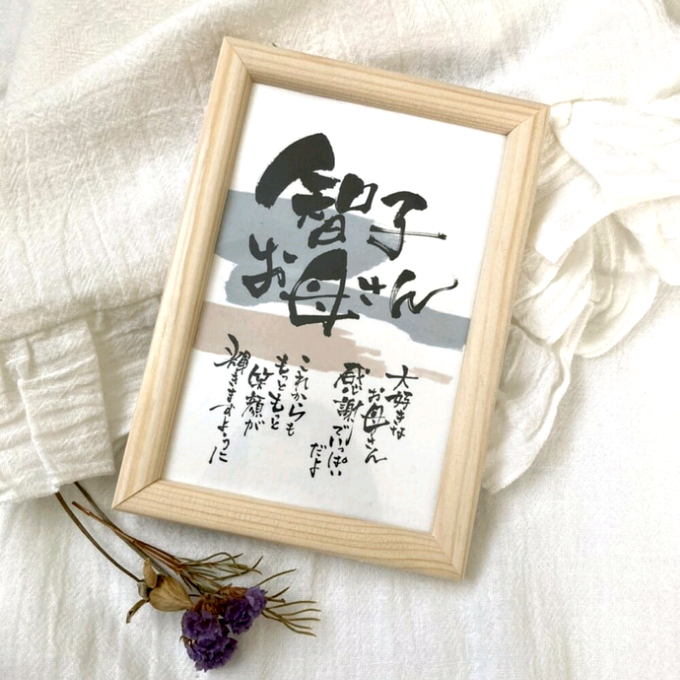 智子
お母さん
大好きな
お母さん
感謝でいっぱい
だよ
これからも
もっともっと
笑顔が
輝きますように